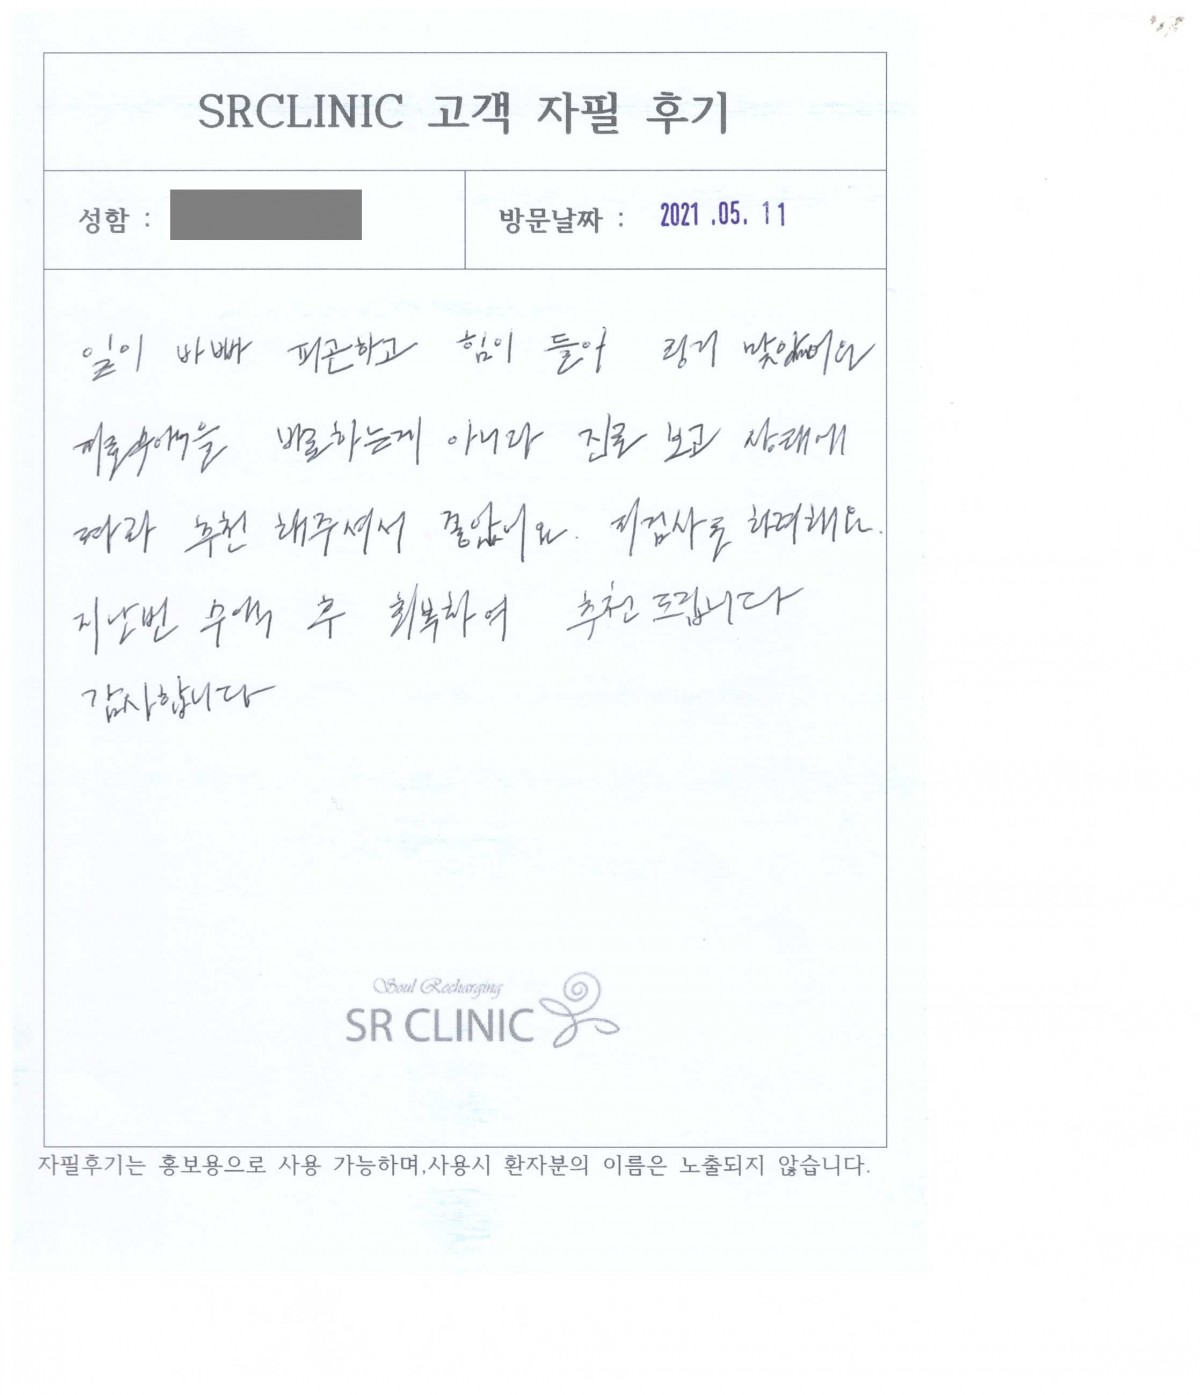 SRCLINIC 고객 자필 후기
성함 :
방문날짜 : 2021.05.11
일이 바빠 피곤하고 힘이 들어 링거 맞았어요
피로수액을 바로하는게 아니라 진료 보고 상태에
따라 추천 해주셔서 좋았어요. 피검사로 하려해요.
지난번 수액 후 회복하여 추천드립니다
감사합니다
Soul Recharging
SR CLINIC
자필후기는 홍보용으로 사용 가능하며,사용시 환자분의 이름은 노출되지 않습니다.